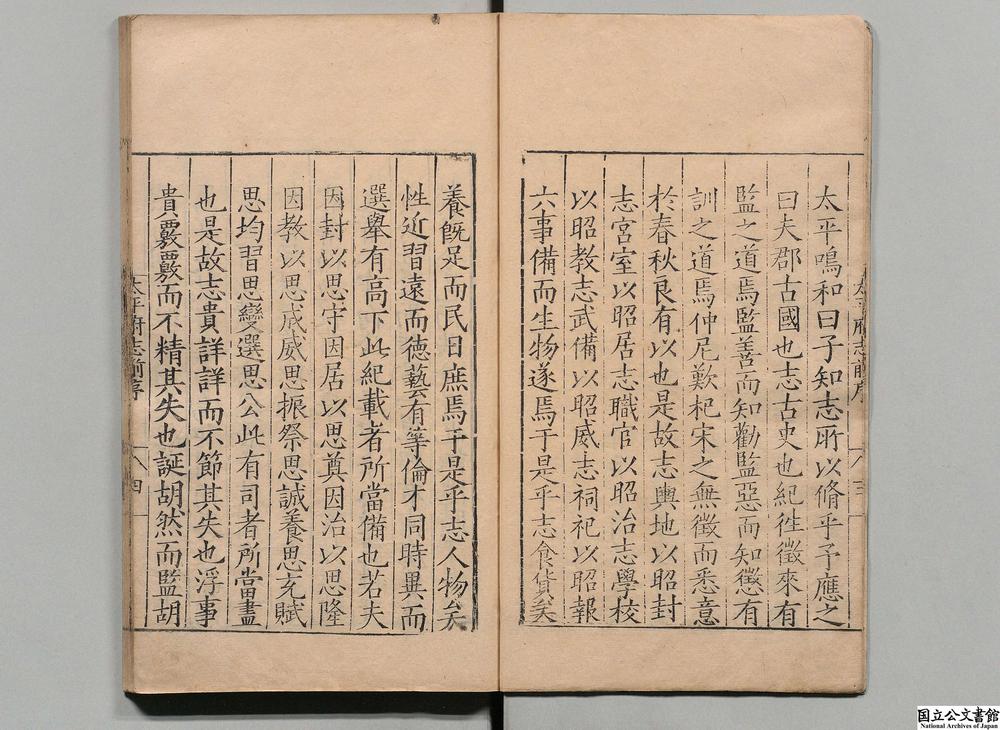 太平鳴和曰子知志所以脩乎予應之
曰夫郡古國也志古史也紀徃徵來有
監之道焉監善而知勸監惡而知懲有
訓之道焉仲尼歎杞宋之無徵而悉意
於春秋良有以也是故志輿地以昭封
志宮室以昭居志職官以昭治志學校
以昭教志武備以昭威志祠祀以昭報
六事備而生物遂焉于是乎志食貨矣
養旣足而民日庶焉于是乎志人物矣
性近習遠而徳藝有等倫才同時異而
選舉有高下此紀載者所當備也若夫
因封以思守因居以思奠因治以思隆
因教以思成威思振祭思誠養思充賦
思均習思變選思公此有司者所當盡
也是故志貴詳詳而不節其失也浮事
貴覈覈而不精其失也誕胡然而監胡
太平府志前序
八
四
国立公文書館
National Archives of Japan